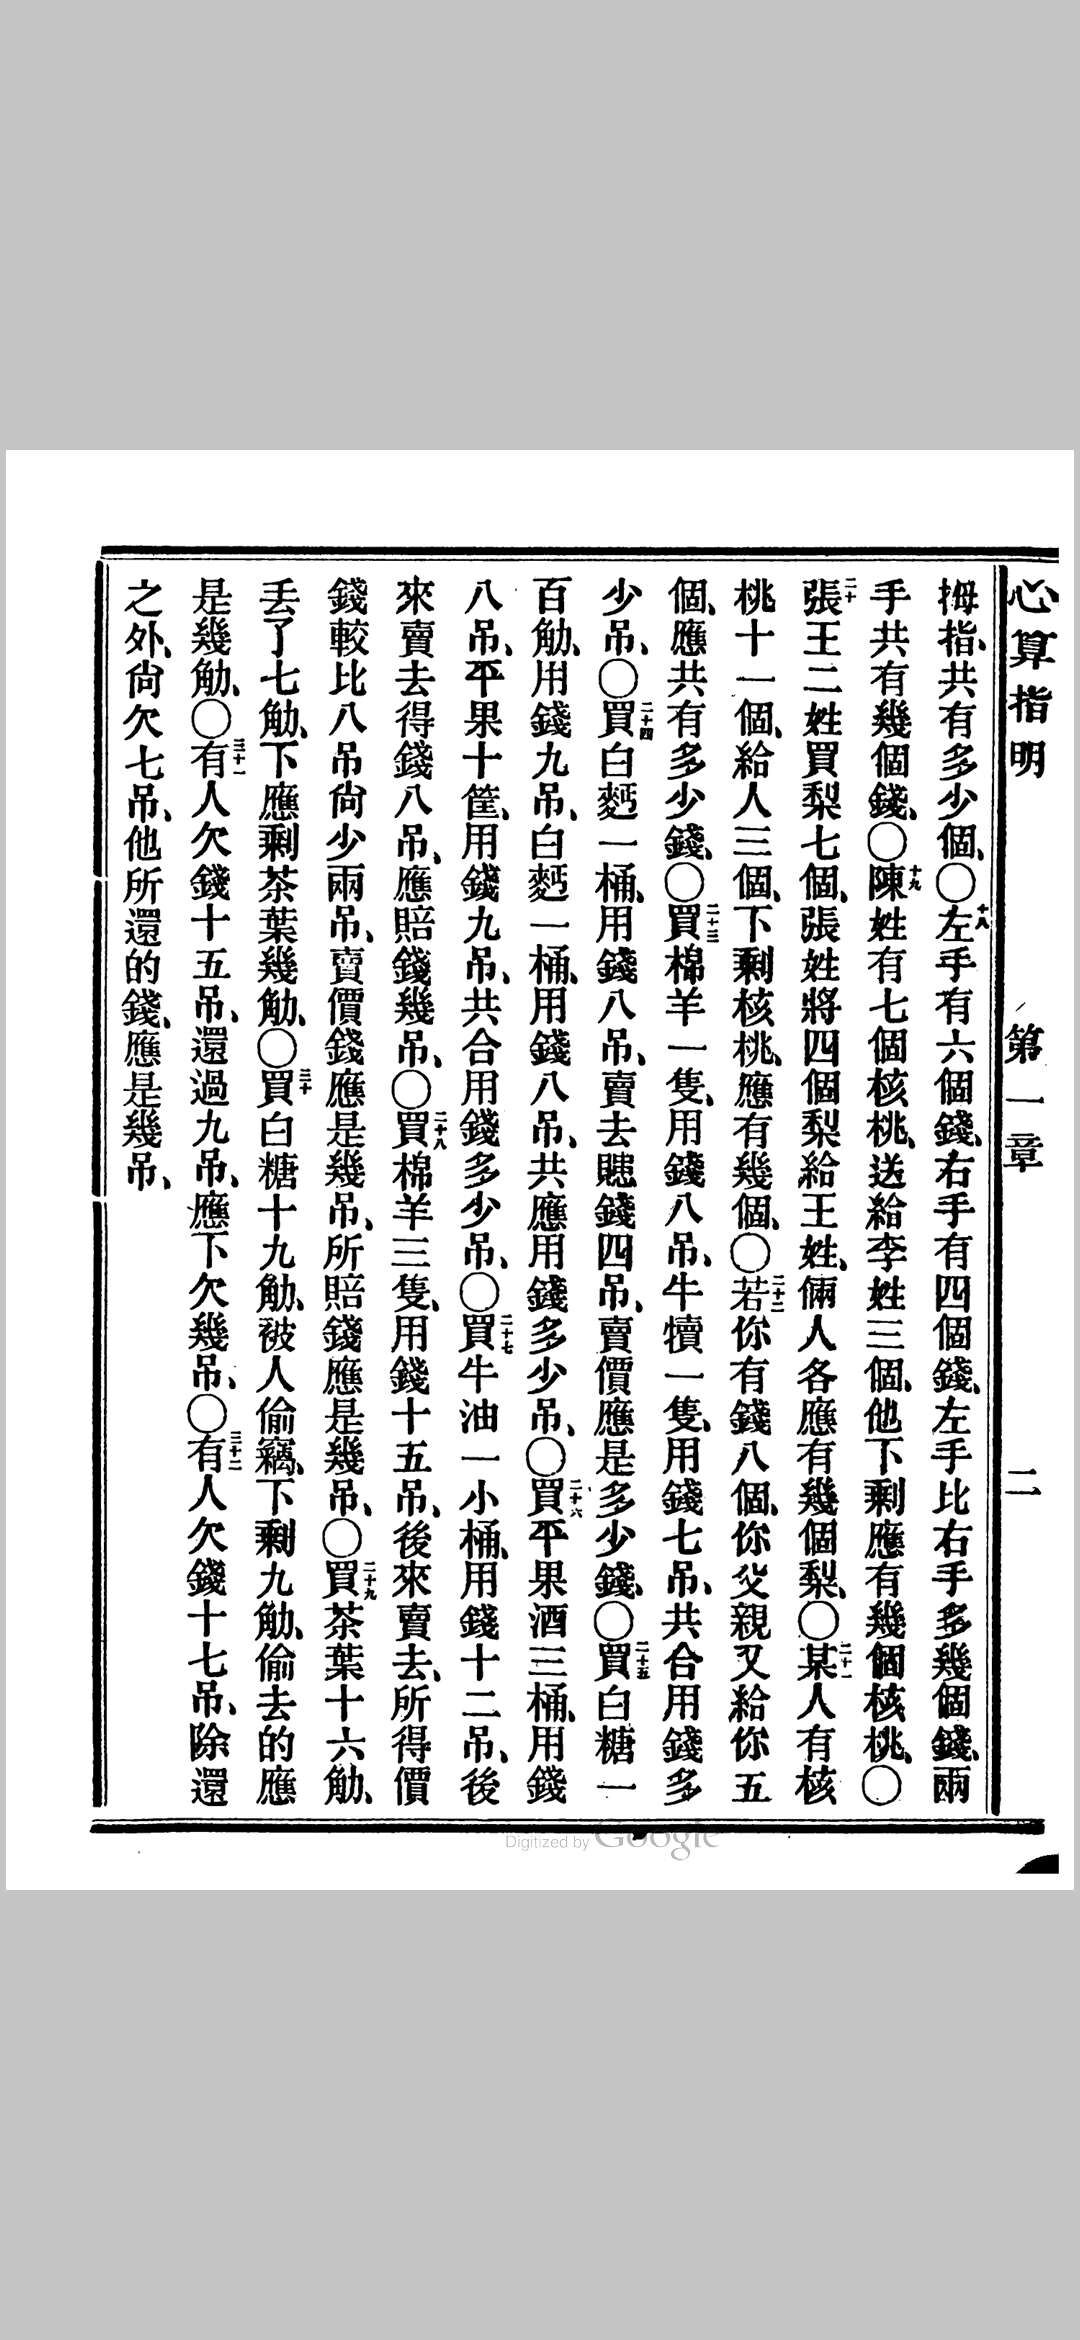 心算指明　第一章　二
拇指、共有多少個、〇十八左手有六個錢、右手有四個錢、左手比右手多幾個錢、兩
手共有幾個錢、〇十九陳姓有七個核桃、送給李姓三個、他下剩應有幾個核桃、〇
二十張王二姓買梨七個、張姓將四個梨給王姓、倆人各應有幾個梨、〇二十一某人有核
桃十一個、給人三個、下剩核桃、應有幾個、〇二十二若你有錢八個、你父親又給你五
個、應共有多少錢、〇二十三買棉羊一隻、用錢八吊、牛犢一隻、用錢七吊、共合用錢多
少吊、〇二十四買白麪一桶、用錢八吊、賣去賺錢四吊、賣價應是多少錢、〇二十五買白糖一
百觔、用錢九吊、白麪一桶、用錢八吊、共應用錢多少吊、〇二十六買平果酒三桶、用錢
八吊、平果十筐、用錢九吊、共合用錢多少吊、〇二十七買牛油一小桶、用錢十二吊、後
來賣去得錢八吊、應賠錢幾吊、〇二十八買棉羊三隻、用錢十五吊、後來賣去、所得價
錢較比八吊尙少兩吊、賣價錢應是幾吊、所賠錢應是幾吊、〇二十九買茶葉十六觔、
丢了七觔、下應剩茶葉幾觔、〇三十買白糖十九觔、被人偷竊、下剩九觔、偷去的應
是幾觔、〇三十一有人欠錢十五吊、還過九吊、應下欠幾吊、〇三十二有人欠錢十七吊、除還
之外、尙欠七吊、他所還的錢、應是幾吊、
Digitized by Google